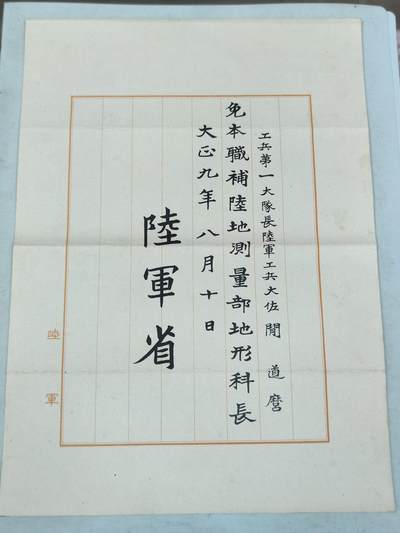 工兵第一大隊長陸軍工兵大佐 間 道麿
免本職補陸地測量部地形科長
大正九年八月十日
陸軍省
陸軍